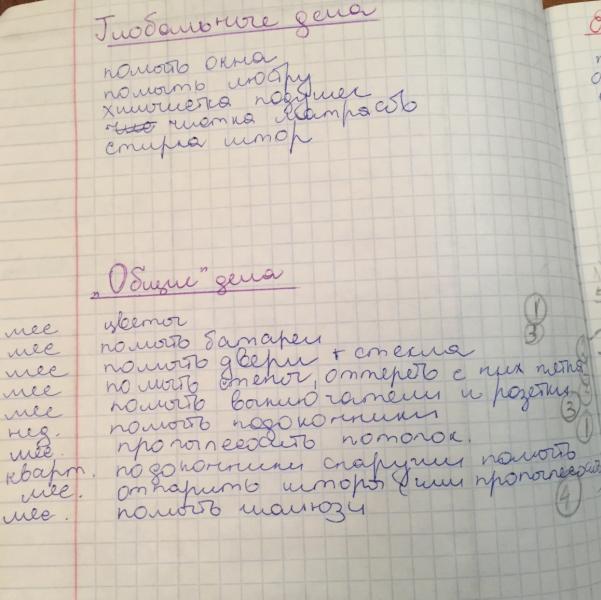 Глобальные дела
помыть окна
помыть люстру
химчистка подушек
чистка матрасов
стирка штор
"Общие" дела
мес цветы 1
мес помыть батареи 3
мес помыть двери + стекла
мес помыть стены, оттереть с них пятна
мес помыть выключатели и розетки
нед. помыть подоконники 3
мес. пропылесосить потолок. 1
кварт. подоконники снаружи помыть
мес. отпарить шторы (или пропылесосить
мес. помыть жалюзи 4